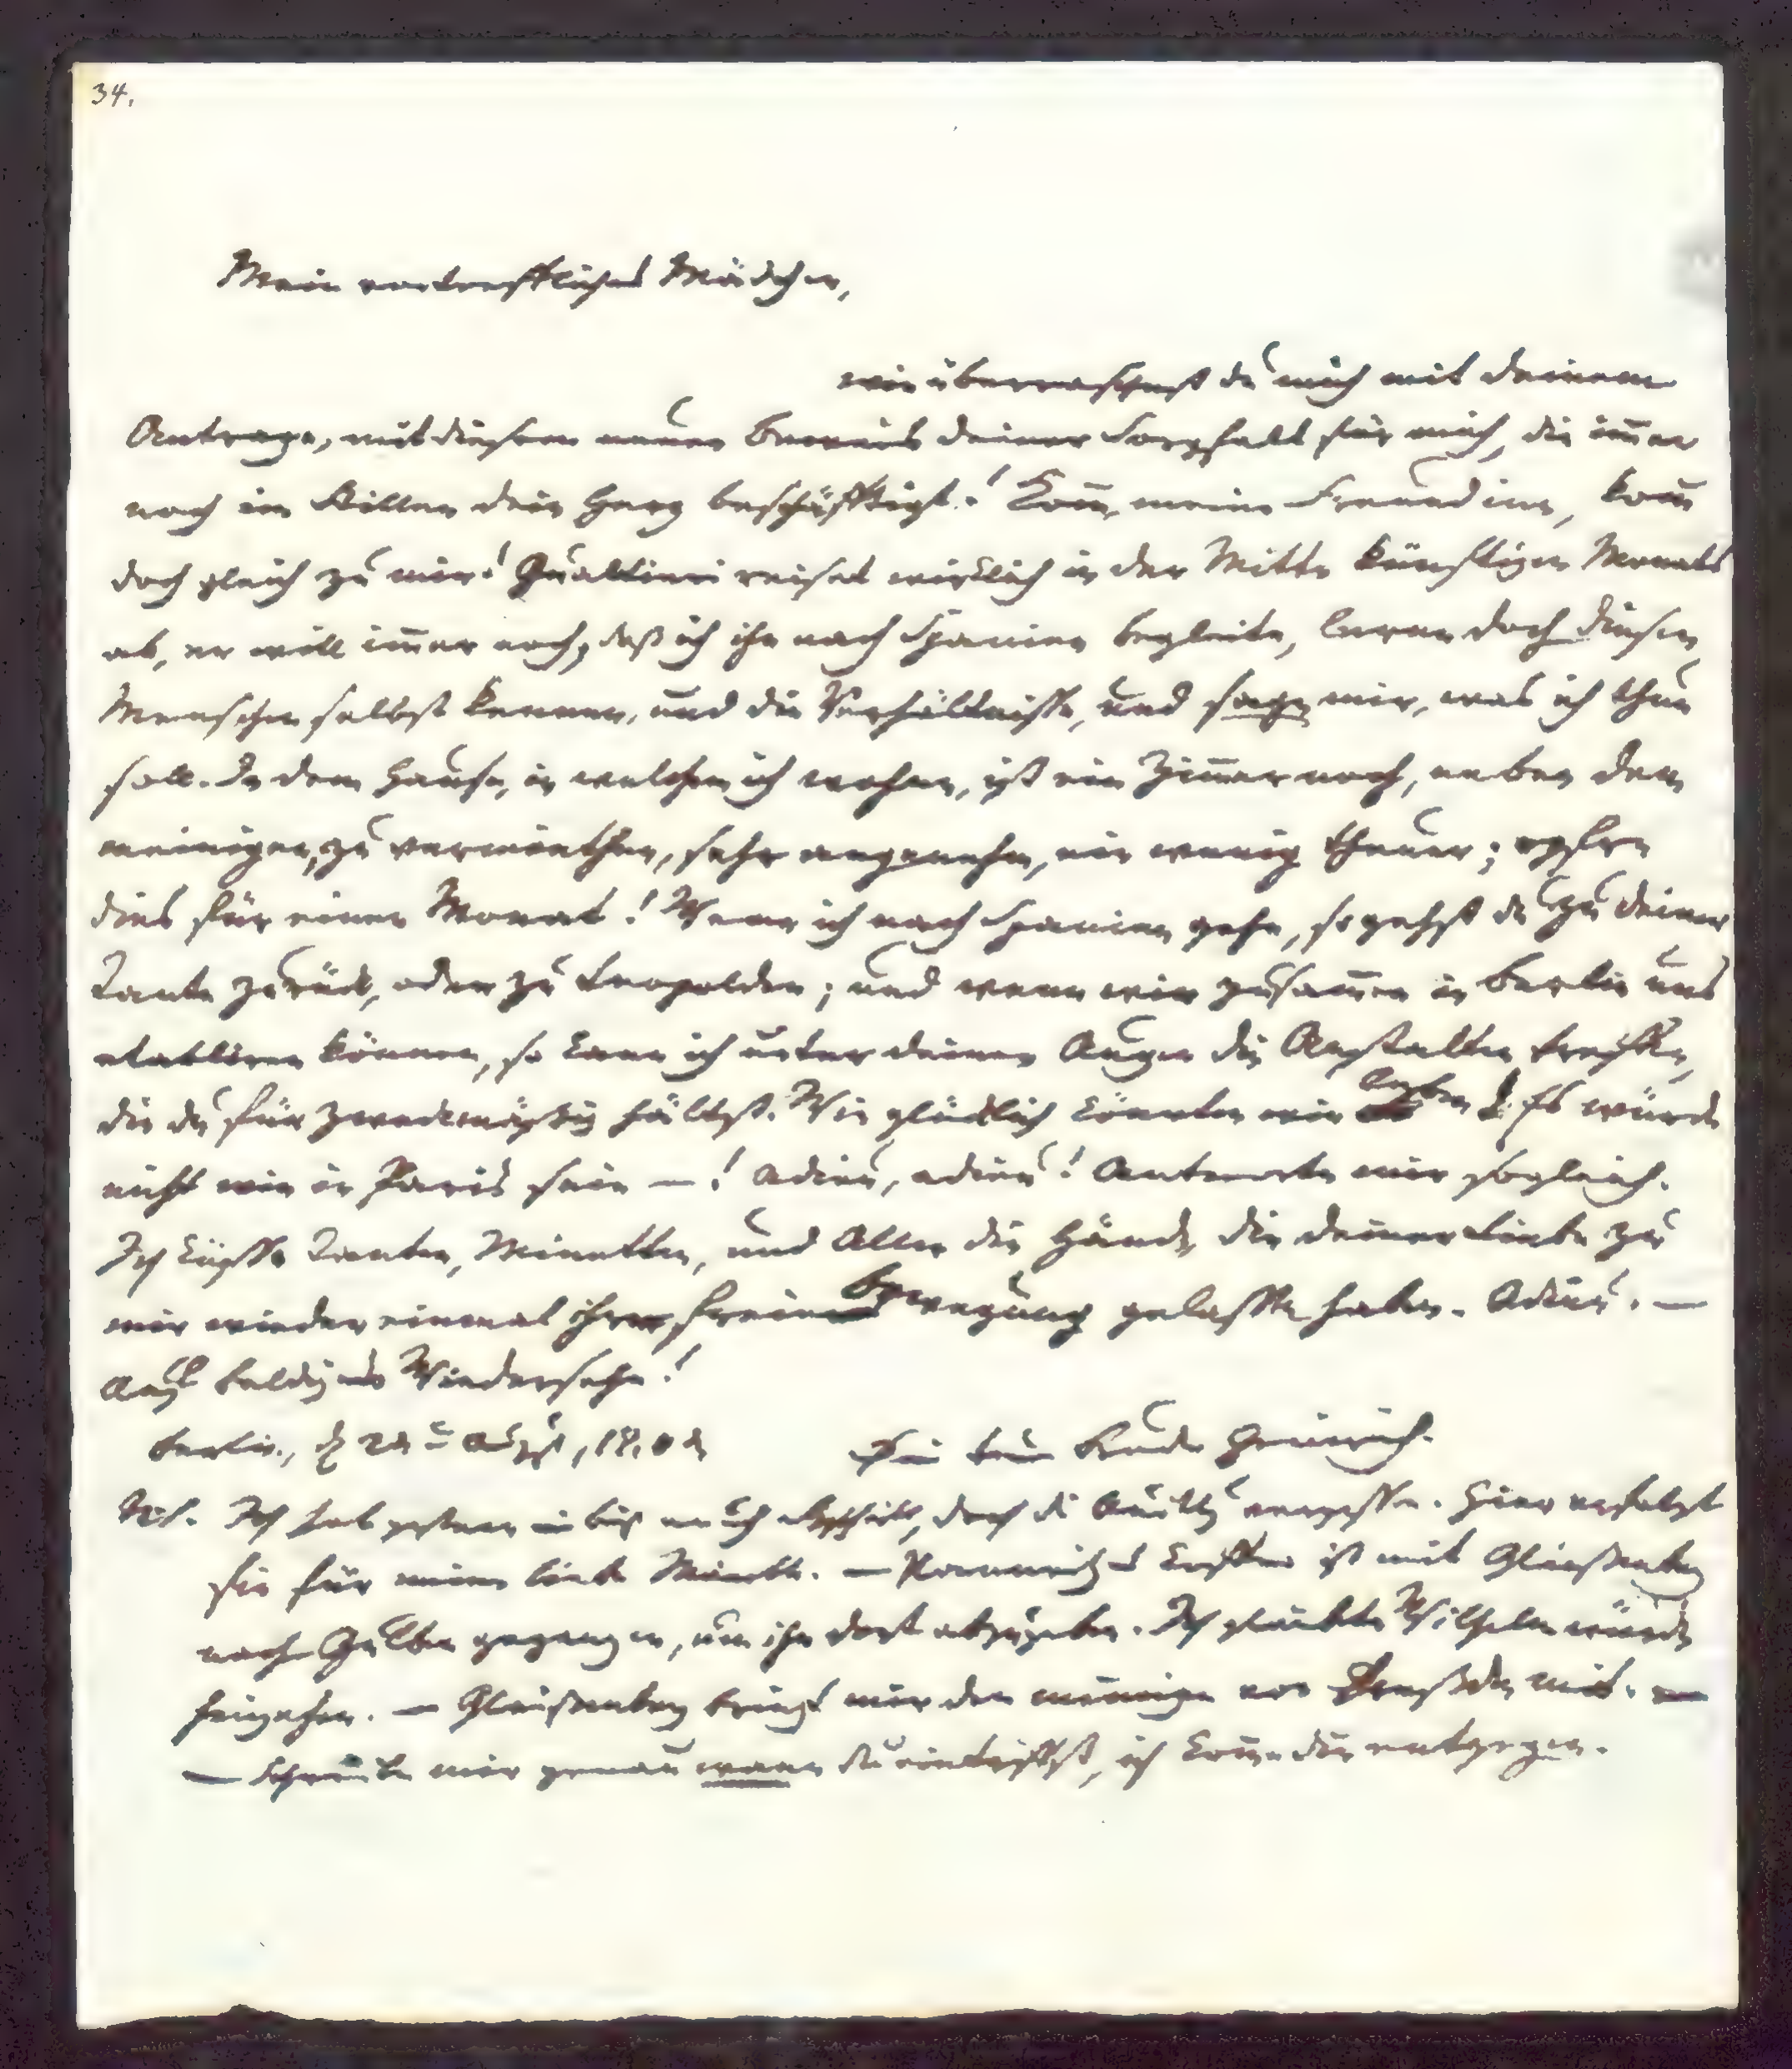 34.
Mein vortreffliches Mädchen,
wie überraschest du mich mit deinem
Antrage, mit diesem neuen Beweis deiner Sorgfalt für mich, die im̄er
noch im Stillen dein Herz beschäfftigt! Kom̄, meine Freundinn, kom̄
doch gleich zu mir! Gualtieri reiset wirklich in der Mitte künftigen Monats
ab, er will im̄er noch, daß ich ihn nach Spanien begleite, lerne doch diesen
Menschen selbst kennen, und die Verhältnisse, und sage mir, was ich thun
soll. In dem Hause, in welchem ich wohne, ist ein Zim̄er noch, neben dem
meinigen, zu vermiethen, sehr angenehm, ein wenig theuer; opfre
dies für einen Monat! Wenn ich nach Spanien gehe, so gehst du zu deiner
Tante zurück, oder zu Leopolden; und wenn wir zusam̄en in Berlin uns
etabliren können, so kann ich unter deinen Augen die Anstalten treffen,
die du für zweckmäßig hältst. Wie glücklich könnten wir leben! Es würde
nicht wie in Paris sein —! Adieu, adieu! Antworte mir sogleich.
Ich küsse Tanten, Minetten, und Allen die Hände, die deiner Liebe zu
mir wieder einmal ihre freie Bewegung gelassen haben. Adieu. —
Auf baldiges Wiedersehn!
Berlin, d August, 18
Dein treuer Bruder Heinrich.
N.S. Ich hab gestern abgeschickt, doch die vergessen. Hier erfolgt
sie für meine liebe Minette. — Pannwitzens Koffer ist mit Gleißenberg
nach Gulben gegangen, um ihn dort abzugeben. Ich glaubte Wilhelm würde
hingehen. — Gleißenberg bringt mir den meinigen von mit. —
— Schreibe mir genau wann du eintriffst, ich kom̄e dir entgegen.